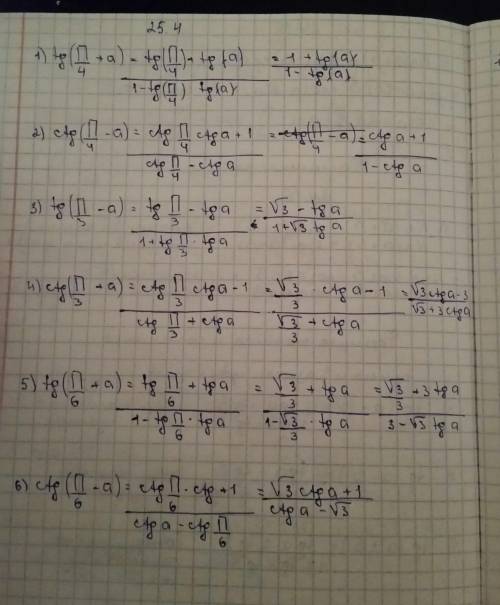 25 4
1) tg(П/4 +a) = tg(П/4) + tg(a) / 1-tg(П/4) tg(a) = 1 + tg(a) / 1 - tg(a)
2) ctg(П/4 -a) = ctg П/4 ctg a + 1 / ctg П/4 - ctg a = ctg(П/4 - a) = ctg a + 1 / 1 - ctg a
3) tg(П/3 -a) = tg П/3 - tg a / 1 + tg П/3 · tg a = √3 - tg a / 1 + √3 tg a
4) ctg(П/3 +a) = ctg П/3 ctg a - 1 / ctg П/3 + ctg a = √3/3 · ctg a - 1 / √3/3 + ctg a = √3 ctg a - 3 / √3 + 3 ctg a
5) tg(П/6 +a) = tg П/6 + tg a / 1 - tg П/6 · tg a = √3/3 + tg a / 1 - √3/3 · tg a = √3/3 + 3 tg a / 3 - √3 tg a
6) ctg(П/6 -a) = ctg П/6 · ctg + 1 / ctg a - ctg П/6 = √3 ctg a + 1 / ctg a - √3